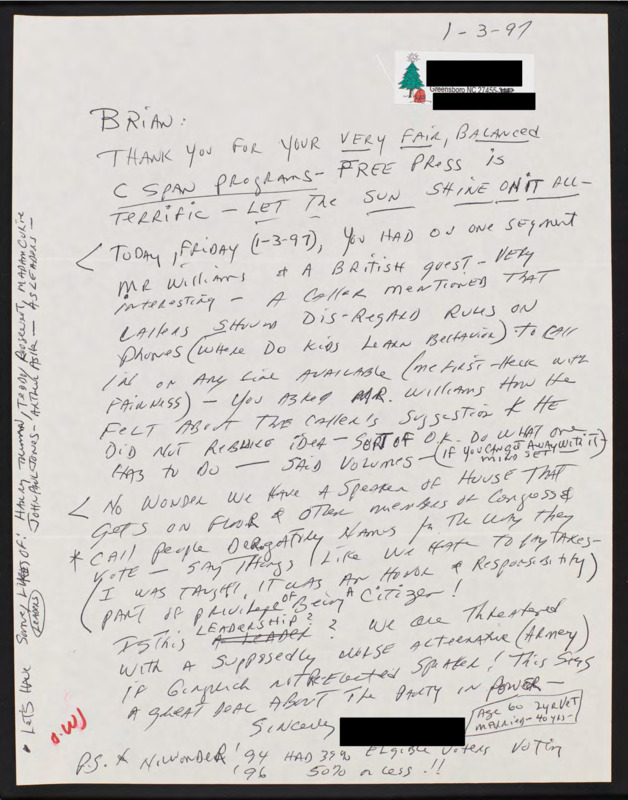 1-3-97
Greensboro NC 27455
BRIAN:
THANK YOU FOR YOUR VERY FAIR, BALANCED
C SPAN PROGRAMS- FREE PRESS IS
TERRIFIC - LET THE SUN SHINE ON IT ALL-
TODAY, FRIDAY (1-3-97), YOU HAD ON ONE SEGMENT
MR WILLIAMS & A BRITISH guest- VERY
interesting - A CALLER MENTIONED THAT
CALLERS SHOULD DIS-REGARD RULES ON
PHONES (WHERE DO KIDS LEARN BEHAVIOR) - TO CALL
IN ON ANY LINE AVAILABLE (ME FIRST - HECK WITH
FAIRNESS) - YOU ASKED MR. Williams HOW HE
FELT ABOUT THE CALLER'S SUGGESTION & HE
DID NOT REBUKE IDEA - SORT OF O.K. DO WHAT ONE
HAS TO DO - SAID VOLUMES - (IF YOU CAN GET AWAY WITH IT - MIND SET)
NO WONDER WE HAVE A SPEAKER OF HOUSE THAT
GETS ON FLOOR & OTHER members of Congress &
* CALL PEOPLE DEROGATORY NAMES for THE WAY They
VOTE - SAY THINGS LIKE WE HATE TO PAY TAXES-
(I WAS TAUGHT, IT WAS AN HONOR & Responsibility)
PART OF PRIVILEGE OF Being A Citizen!
Is This LEADERSHIP? A LEADER? We are Threatened
WITH A SUPPOSEDLY WORSE ALTERNATIVE (ARMEY)
IF GINGRICH NOT REELECTED Speaker! This Says
A GREAT DEAL ABOUT THE PARTY IN POWER -
Sincerely
Age 60 24R VET
MARRIED - 40 yrs-
P.S. * No WONDER! '94 HAD 39% Eligible Voters Voting
'96 50% or less!!
* LETS HAVE SOME LIKES OF: HARRY TRUMAN, TEDDY ROOSEVELT, MADAM CURIE
(LEADERS) JOHN PAUL JONES - ARTHUR ASHE - AS LEADERS -